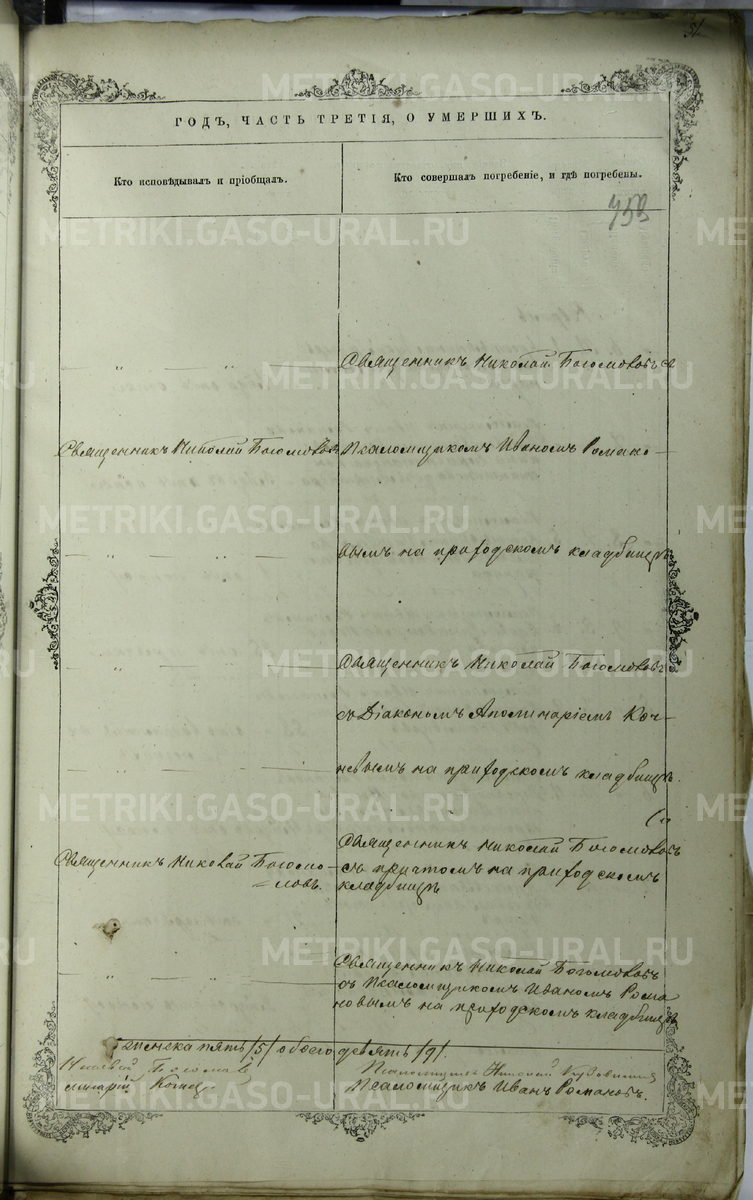 51
ГОДЪ, ЧАСТЬ ТРЕТІЯ, О УМЕРШИХЪ.
Кто исповѣдывалъ и пріобщалъ.
Кто совершалъ погребеніе, и гдѣ погребены.
753
Священникъ Николай Богомоловъ съ
Священникъ Николай Богомоловъ
Псаломщикомъ Иваномъ Романо-
вымъ на приходскомъ кладбищѣ
Священникъ Николай Богомоловъ
съ Діакономъ Аполинаріемъ Коч-
невымъ на приходскомъ кладбищѣ.
Священникъ Николай Богомо-
ловъ.
Священникъ Николай Богомоловъ
съ причтомъ на приходскомъ
кладбищѣ
Священникъ Николай Богомоловъ
съ Псаломщикомъ Иваномъ Рома
новымъ на приходскомъ кладбищѣ
женска пять /5/ обоего девять /9/.
Псаломщикъ Николай
Псаломщикъ Иванъ Романовъ.
METRIKI.GASO-URAL.RU